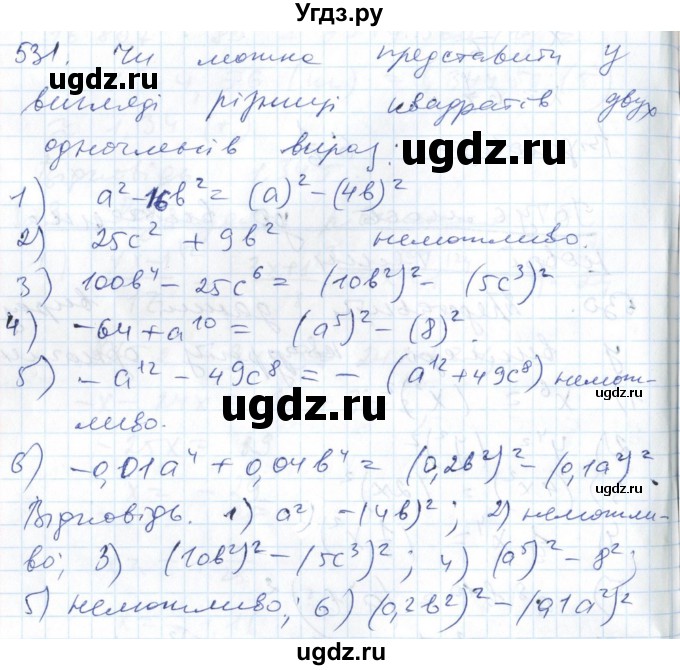 Угдз.ру
531. Чи можна представити у
ugdz.ru ugdz.ru
вигляді різниці квадратів двух
одночленів вираз: ugdz.ru
1) a² - 16b² = (a)² - (4b)²
2) 25c² + 9b² неможливо.
3) 100b⁴ - 25c⁶ = (10b²)² - (5c³)²
4) -64 + a¹⁰ = (a⁵)² - (8)².
ugdz.ru
5) -a¹² - 49c⁸ = - (a¹² + 49c⁸) немож-
ливо. ugdz.ru ugdz.ru
6) -0,01a⁴ + 0,04b⁴ = (0,2b²)² - (0,1a²)².
ugdz.ru
Відповідь. 1) a² - (4b)²; 2) неможли-
во; 3) (10b²)² - (5c³)²; 4) (a⁵)² - 8²;
5) неможливо; 6) (0,2b²)² - (0,1a²)²
ugdz.ru ugdz.ru